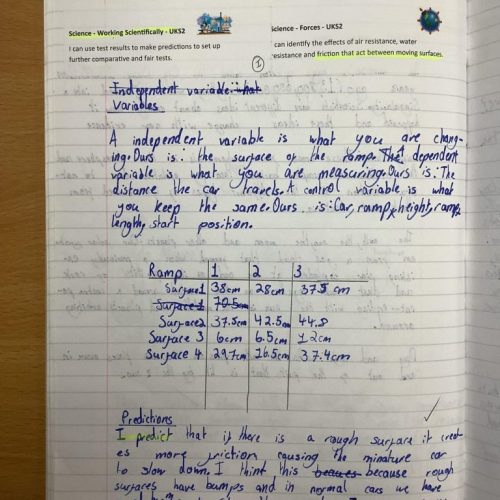 Science - Working Scientifically - UKS2
I can use test results to make predictions to set up
further comparative and fair tests.
Science - Forces - UKS2
I can identify the effects of air resistance, water
resistance and friction that act between moving surfaces.
1
Independent variable: what
Variables
A independent variable is what you are chang-
ing. Ours is: the surface of the ramp. The dependent
variable is what you are measuring. Ours is: The
distance the car travels. A control variable is what
you keep the same. Ours is: Car, ramp height, ramp
length, start position.
Ramp 1 2 3
Surface 1 38cm 28cm 37.5 cm
Surface 1 79.5cm
Surface2 37.5cm 42.5cm 44.8
Surface 3 6cm 6.5cm 12cm
Surface 4 29.7cm 16.5cm 37.4cm
Predictions
I predict that if there is a rough surface it creat-
es more friction causing the minature car
to slow down. I think this because rough
surfaces have bumps and in normal cars we have